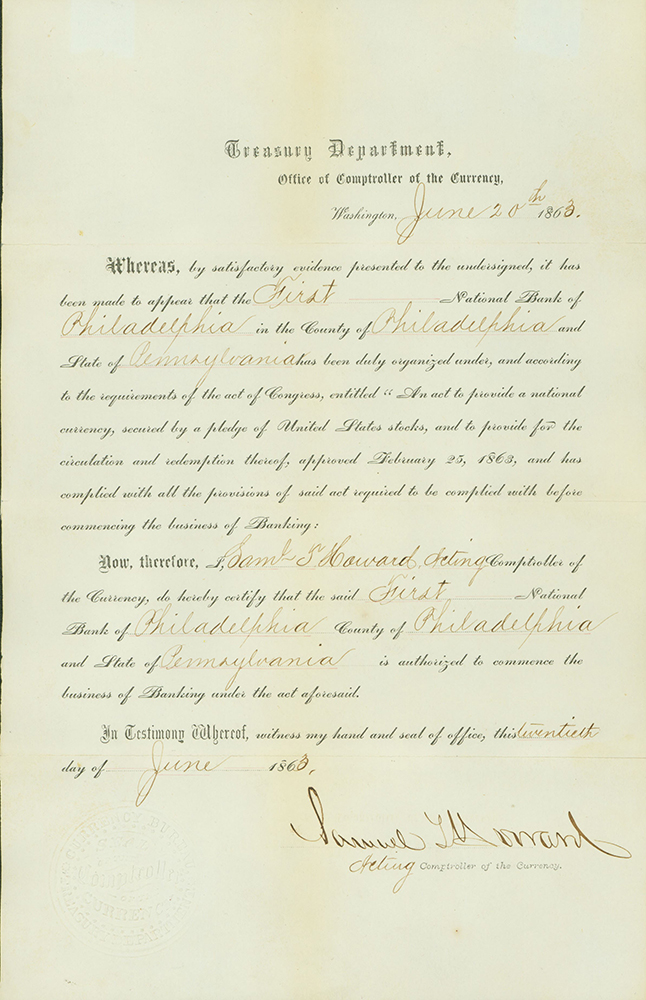 Treasury Department,
Office of Comptroller of the Currency,
Washington, June 20th 1863.
Whereas, by satisfactory evidence presented to the undersigned, it has
been made to appear that the First National Bank of
Philadelphia in the County of Philadelphia and
State of Pennsylvania has been duly organized under, and according
to the requirements of the act of Congress, entitled “An act to provide a national
currency, secured by a pledge of United States stocks, and to provide for the
circulation and redemption thereof, approved February 25, 1863, and has
complied with all the provisions of said act required to be complied with before
commencing the business of Banking:
Now, therefore, I, Saml. T. Howard, Acting Comptroller of
the Currency, do hereby certify that the said First National
Bank of Philadelphia County of Philadelphia
and State of Pennsylvania is authorized to commence the
business of Banking under the act aforesaid.
In Testimony Whereof, witness my hand and seal of office, this twentieth
day of June 1863.
Samuel T. Howard
Acting Comptroller of the Currency.